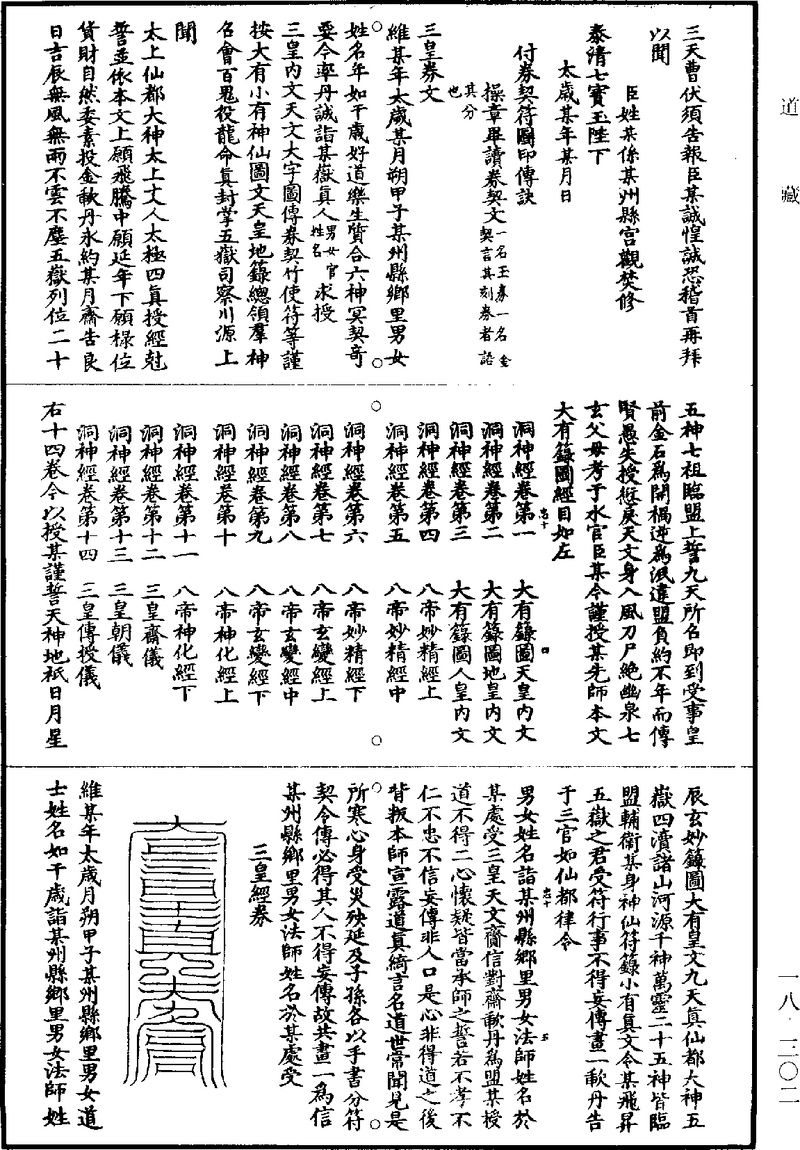 道藏
三天曹伏須告報臣某誠惶誠恐稽首再拜
以聞
臣姓某係某州縣宫觀焚修
泰清七寳玉陛下
太歲某年某月日
付券契符圖印傳訣
操章畢讀券契文一名玉券一名金契言其刻券者語其分也
三皇券文
維某年太歲某月朔甲子某州縣鄉里男女
姓名年如干歲好道樂生質合六神冥契奇
要令率丹誠詣某嶽真人男女官姓名求授
三皇内文天文大字圖傳券契竹使符等謹
按大有小有神仙圖文天皇地籙總領羣神
名會百鬼役龍命真封掌五嶽司察川源上
聞
太上仙都大神太上丈人太極四真授經尅
誓並依本文上願飛騰中願延年下願祿位
貨財自然委素投金軟丹永約某月齋告良
日吉辰無風無雨不雲不塵五嶽列位二十
五神七祖臨盟上誓九天所名即到受事皇
前金石為開禍逆為泯違盟負約不年而傳
賢愚失授愆戾天文身入風刀尸絶幽泉七
玄父母考于水官臣某今謹授某先師本文
大有籙圖經目如左
洞神經卷第一 大有籙圖天皇内文
洞神經卷第二 大有籙圖地皇内文
洞神經卷第三 大有籙圖人皇内文
洞神經卷第四 八帝妙精經上
洞神經卷第五 八帝妙精經中
洞神經卷第六 八帝妙精經下
洞神經卷第七 八帝玄變經上
洞神經卷第八 八帝玄變經中
洞神經卷第九 八帝玄變經下
洞神經卷第十 八帝神化經上
洞神經卷第十一 八帝神化經下
洞神經卷第十二 三皇齋儀
洞神經卷第十三 三皇朝儀
洞神經卷第十四 三皇傳授儀
右十四卷今以授某謹誓天神地祇日月星
辰玄妙籙圖大有皇文九天真仙都大神五
嶽四瀆諸山河源千神萬靈二十五神皆臨
盟輔衛某身神仙符籙小有真文令某飛昇
五嶽之君受符行事不得妄傳畫一軟丹告
于三官如仙都律令
男女姓名詣某州縣鄉里男女法師姓名於
某處受三皇天文齎信對齋軟丹為盟某授
道不得二心懷疑皆當承師之誓若不孝不
仁不忠不信妄傳非人口是心非得道之後
背叛本師宣露道真綺言名道世常聞見是
所寒心身受災殃延及子孫各以手書分符
契令傳必得其人不得妄傳故共畫一為信
某州縣鄉里男女法師姓名於某處受
三皇經券
維某年太歲月朔甲子某州縣鄉里男女道
士姓名如干歲詣某州縣鄉里男女法師姓
一八·三〇二